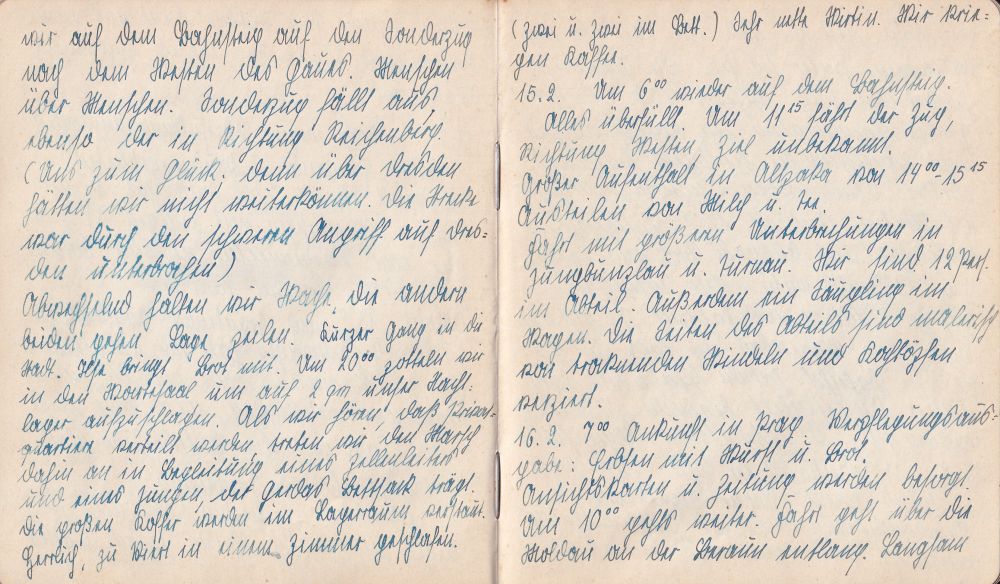 wir auf dem Bahnsteig auf den Sonderzug
nach dem Westen des Gaues. Menschen
über Menschen. Sonderzug fällt aus,
ebenso der in Richtung Reichenberg.
(Uns zum Glück, denn über Dresden
hätten wir nicht weiterkönnen. Die Strecke
war durch den schweren Angriff auf Dres-
den unterbrochen)
Abwechselnd halten wir Wache, die andern
beiden gehen Lage peilen. Kurzer Gang in die
Stadt. Ilse bringt Brot mit. Um 20⁰⁰ zotteln wir
in den Wartesaal um auf 2 qm unser Nacht-
lager aufzuschlagen. Als wir hören, daß Privat-
quartiere verteilt werden treten wir den Marsch
dahin an in Begleitung eines Zellenleiters
und eines Jungen, der Gerdas Bettsack trägt.
Die großen Koffer werden im Lagerraum verstaut.
Herrlich, zu Viert in einem Zimmer geschlafen.
(zwei u. zwei im Bett.) Sehr nette Wirtin. Wir krie-
gen Kaffee.
15.2. Um 6⁰⁰ wieder auf dem Bahnsteig.
Alles überfüllt. Um 11¹⁵ fährt der Zug,
Richtung Westen, Ziel unbekannt.
Großer Aufenthalt in Altpaka von 14⁰⁰-15¹⁵
Austeilen von Milch u. Tee.
Fahrt mit größeren Unterbrechungen in
Jungbunzlau u. Turnau. Wir sind 12 Pers.
im Abteil. Außerdem ein Säugling im
Wagen. Die Seiten des Abteils sind malerisch
von trocknenden Windeln und
verziert.
16.2. 7⁰⁰ Ankunft in Prag. Verpflegungsaus-
gabe: Erbsen mit Wurst u. Brot.
Ansichtskarten u. Zeitung werden besorgt.
Um 10⁰⁰ gehts weiter. Fahrt geht über die
Moldau an der Beraun entlang. Langsam